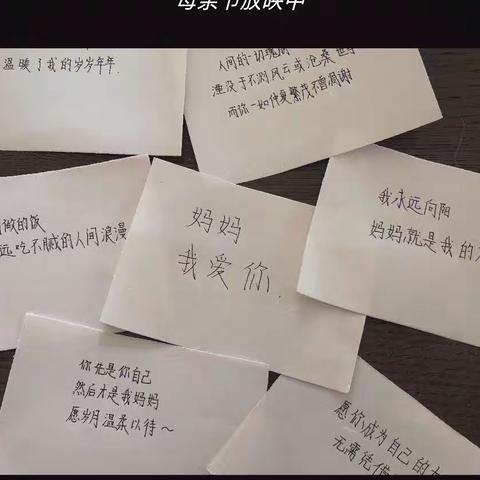 母亲节放映中
温暖了我的岁岁年年.
人间的一切瑰丽
湮没于不测风云或沧桑世事
而你一如仲夏繁茂不曾凋谢
做的饭
远吃不腻的人间浪漫
妈妈
我爱你.
我永远向阳
妈妈,就是我的
你先是你自己
然后才是我妈妈
愿岁月温柔以待～
愿你成为自己的
无需凭借